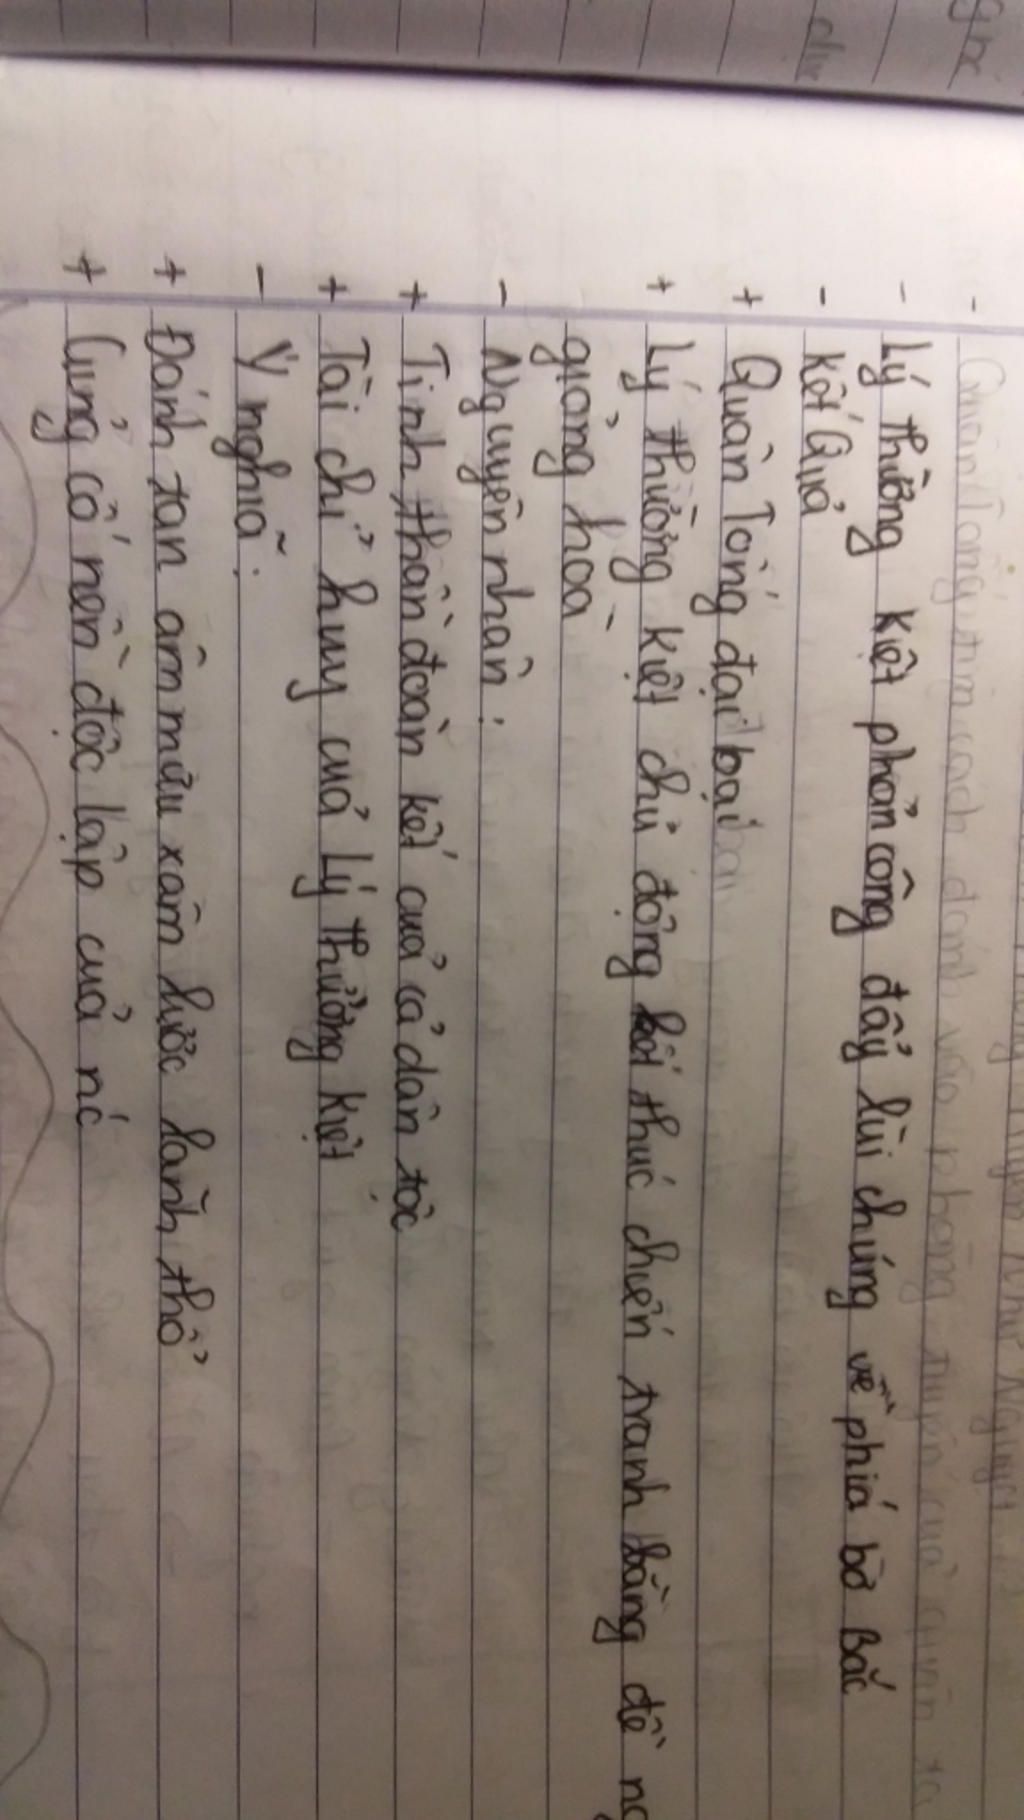 - Quân Tống tìm cách đánh vào phòng tuyến của quân ta
- Lý Thường Kiệt phản công đẩy lùi chúng về phía bờ Bắc
- Kết Quả
+ Quân Tống đại bại
+ Lý Thường Kiệt chủ động kết thúc chiến tranh bằng đề
giảng hoà
- Nguyên nhân:
+ Tinh thần đoàn kết của cả dân tộc
+ Tài chỉ huy của Lý Thường Kiệt
- Ý nghĩa:
+ Đánh tan âm mưu xâm lược lãnh thổ
+ Củng cố nền độc lập của nc